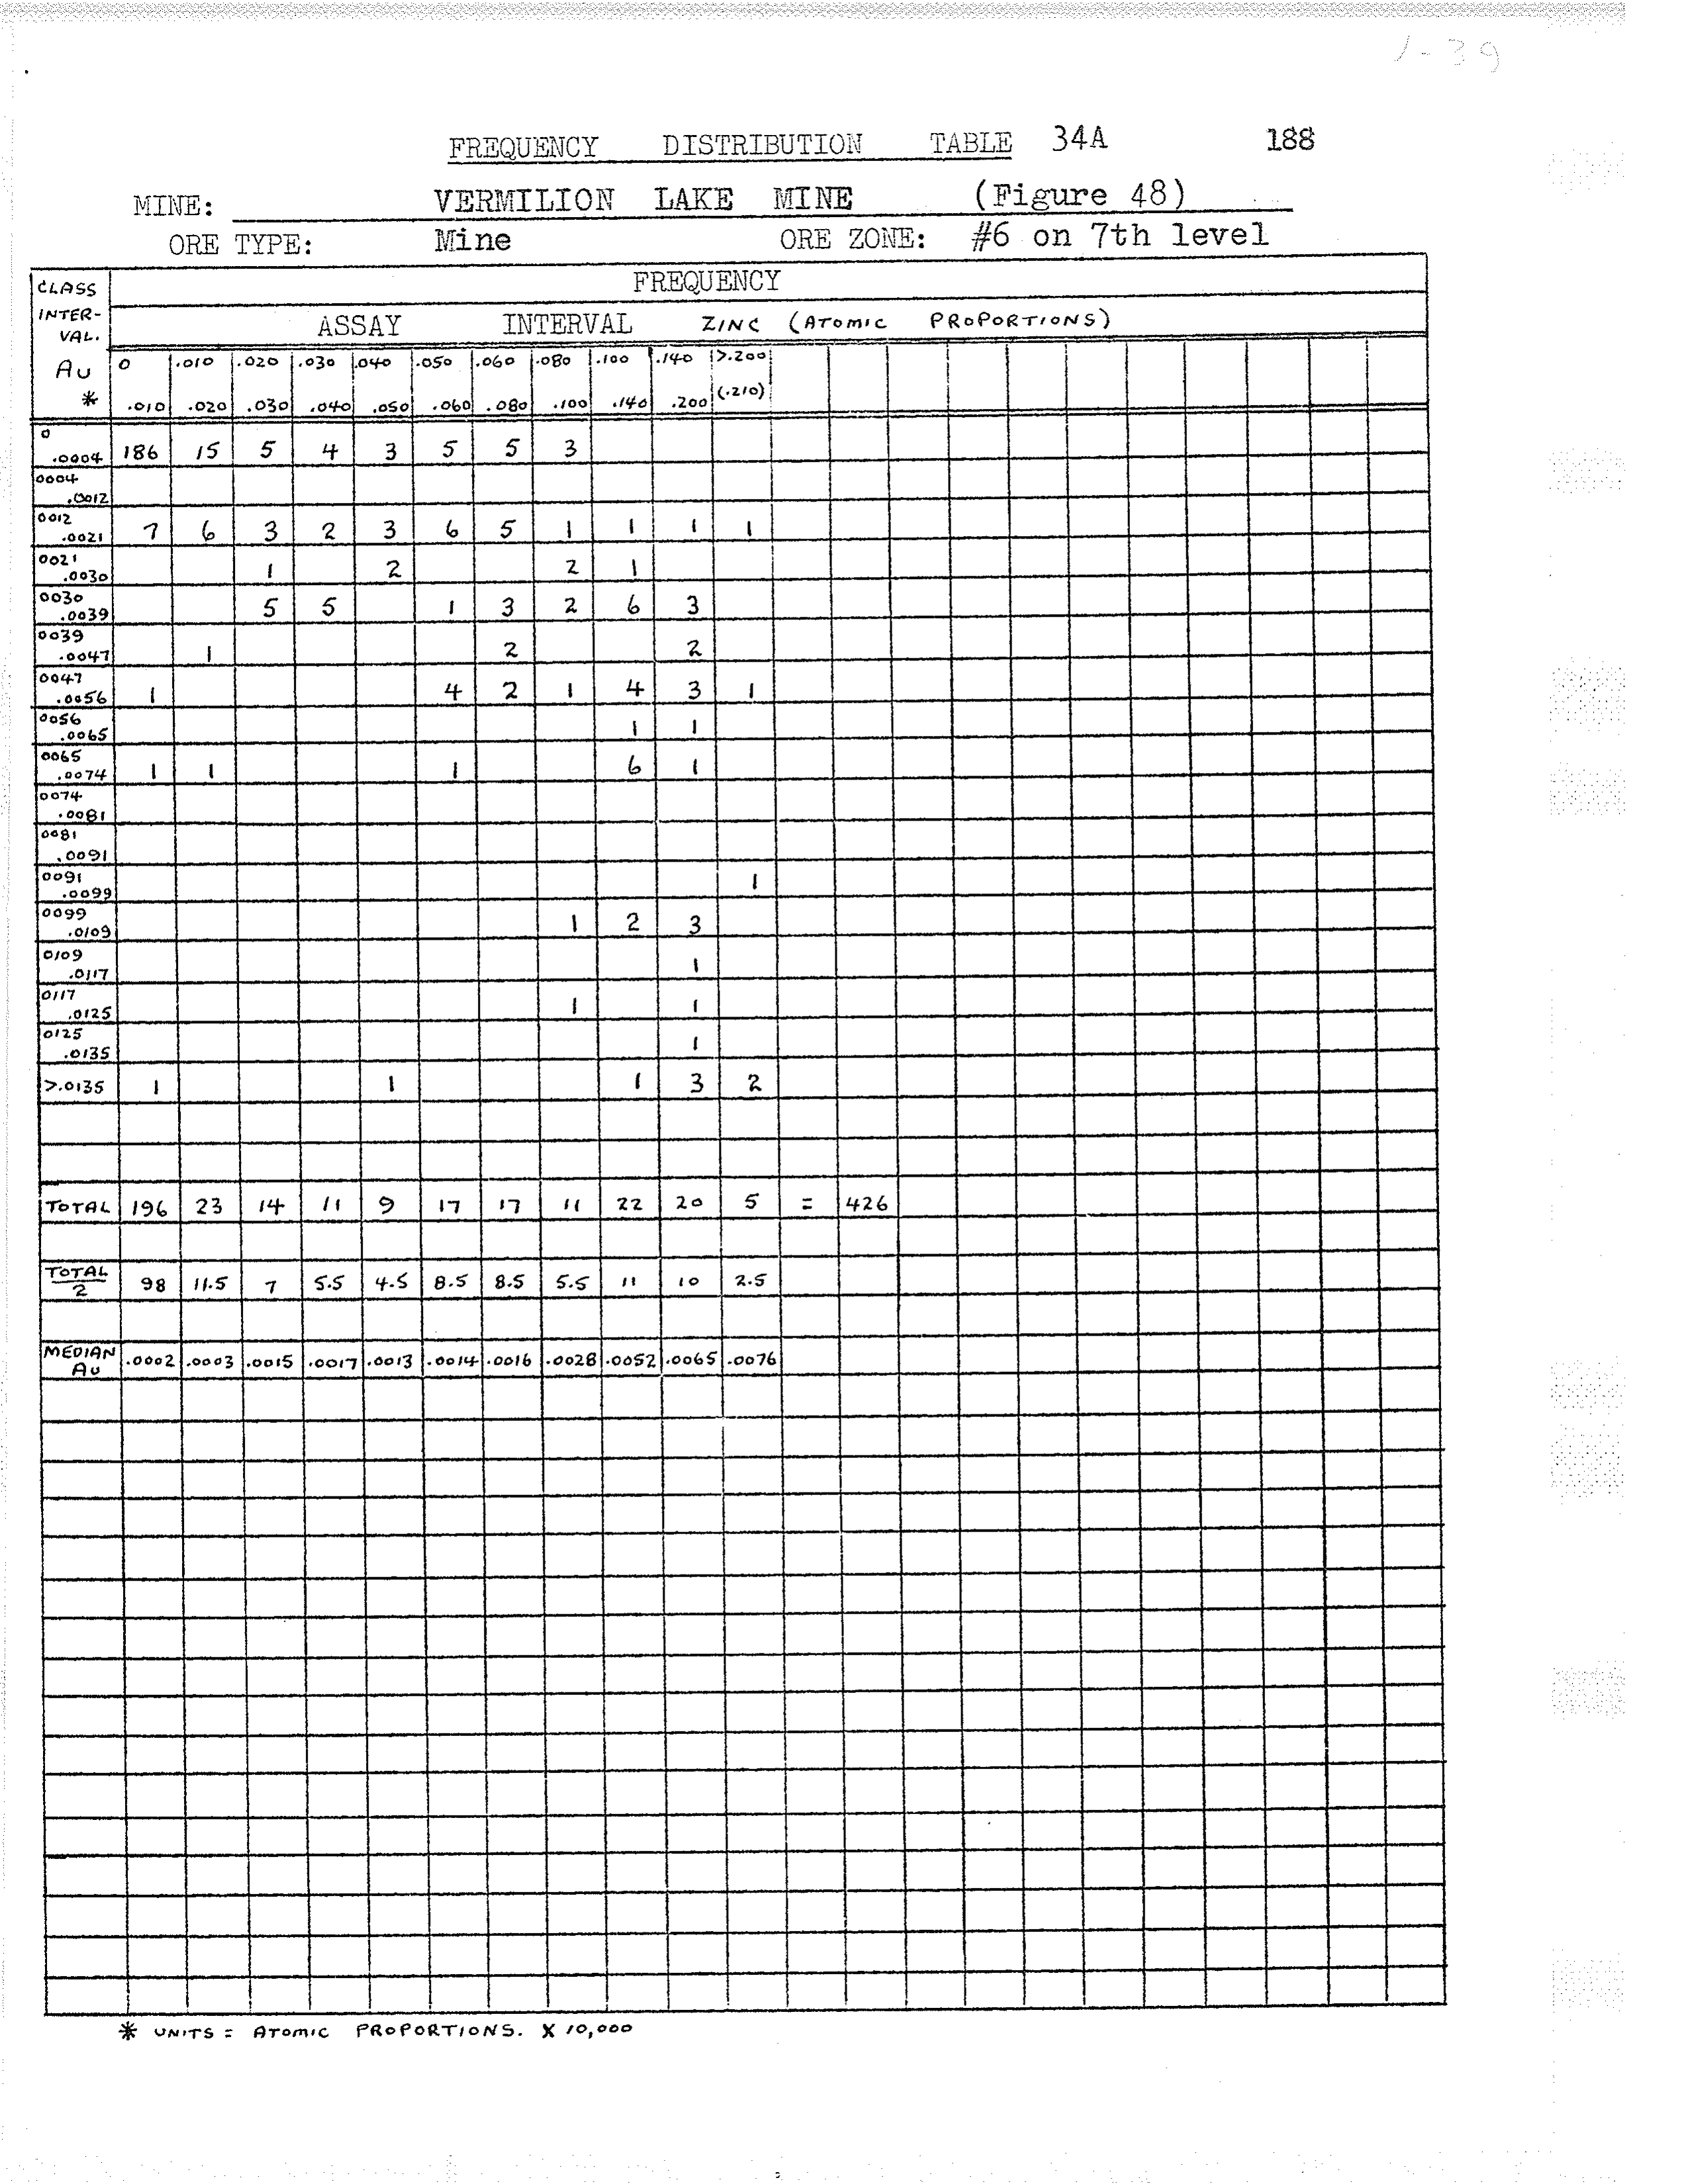 1-39
FREQUENCY DISTRIBUTION TABLE 34A 188
MINE: VERMILION LAKE MINE (Figure 48)
ORE TYPE: Mine ORE ZONE: #6 on 7th level
CLASS INTER- VAL. Au *
FREQUENCY
ASSAY INTERVAL ZINC (ATOMIC PROPORTIONS)
0 .010 .020 .030 .040 .050 .060 .080 .100 .140 >.200
.010 .020 .030 .040 .050 .060 .080 .100 .140 .200 (.210)
0
.0004 186 15 5 4 3 5 5 3
0004
.0012
0012
.0021 7 6 3 2 3 6 5 1 1 1 1
0021
.0030 1 2 2 1
0030
.0039 5 5 1 3 2 6 3
0039
.0047 1 2 2
0047
.0056 1 4 2 1 4 3 1
0056
.0065 1 1
0065
.0074 1 1 1 6 1
0074
.0081
0081
.0091
0091
.0099 1
0099
.0109 1 2 3
0109
.0117 1
0117
.0125 1 1
0125
.0135 1
>.0135 1 1 1 3 2
TOTAL 196 23 14 11 9 17 17 11 22 20 5 = 426
TOTAL
2 98 11.5 7 5.5 4.5 8.5 8.5 5.5 11 10 2.5
MEDIAN
Au .0002 .0003 .0015 .0017 .0013 .0014 .0016 .0028 .0052 .0065 .0076
* UNITS = ATOMIC PROPORTIONS. X 10,000